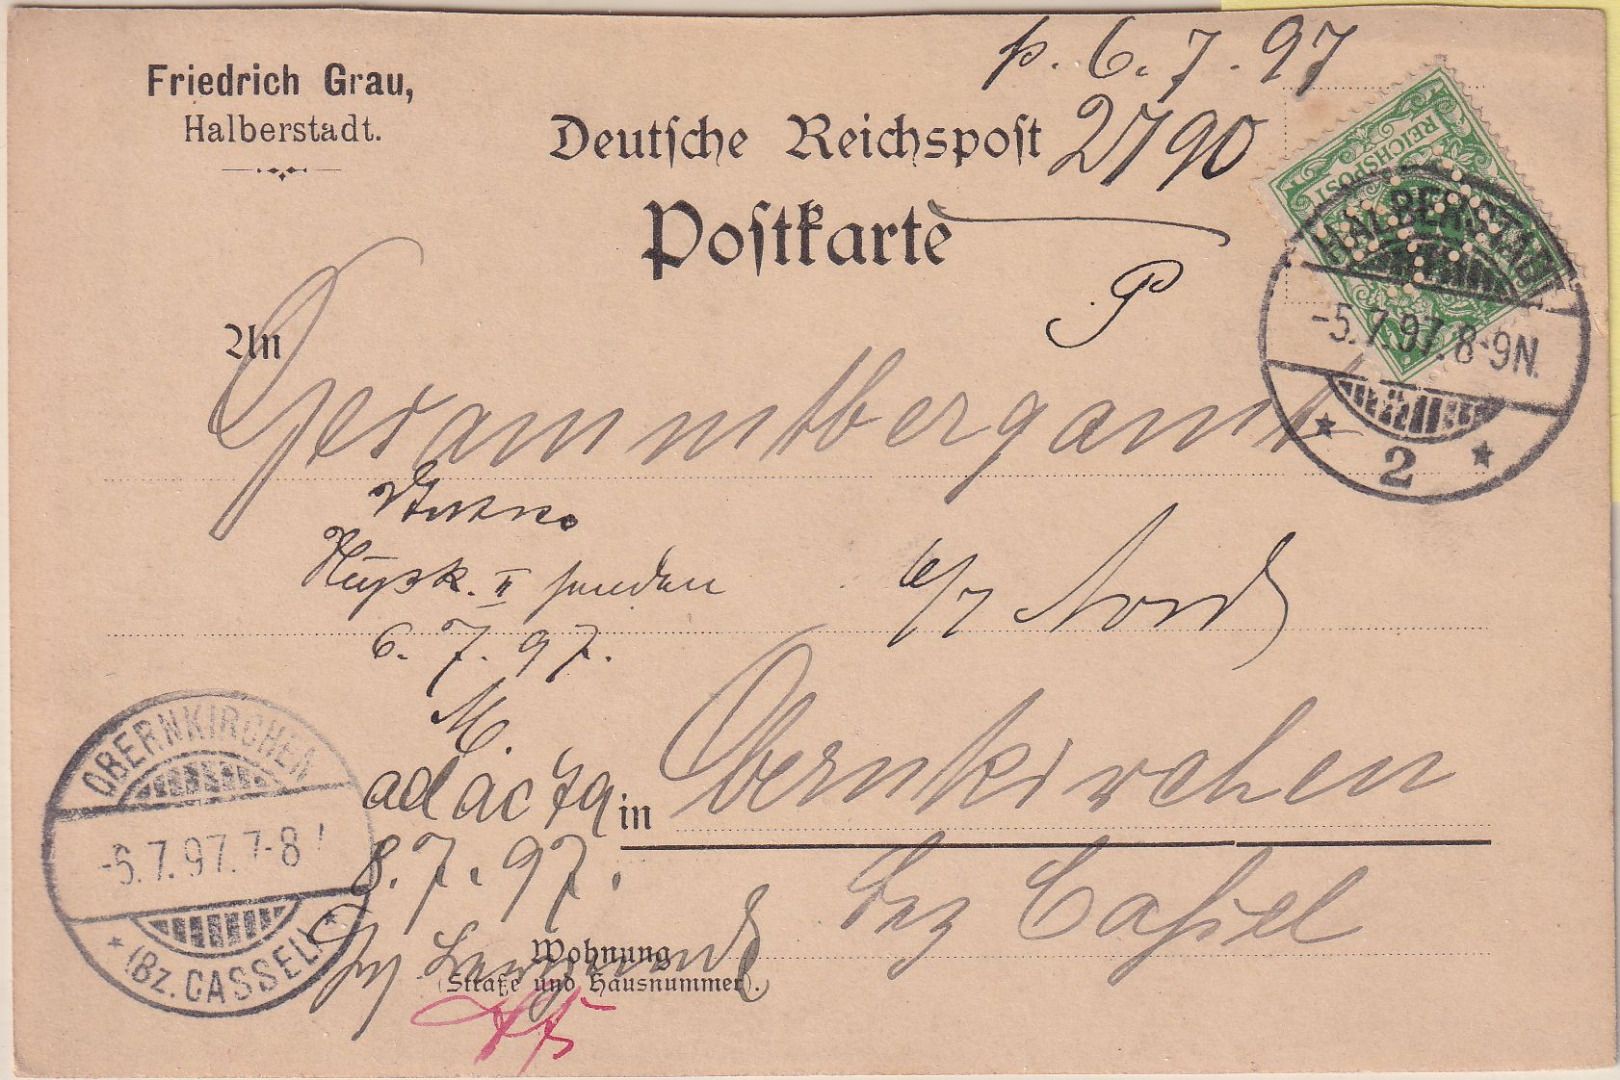 Friedrich Grau,
Halberstadt.
p. 6. 7. 97
Deutsche Reichspost 2790
Postkarte
P
REICHSPOST
HALBERSTADT
-5.7.97.8-9N.
2
An
Gesammtbergamt
6/7 Nord
6. 7. 97.
M.
ad acta
in Obernkirchen
8. 7. 97.
Bez Cassel
OBERNKIRCHEN
-6.7.97.7-8
(Bz. CASSEL)
Wohnung
(Straße und Hausnummer).